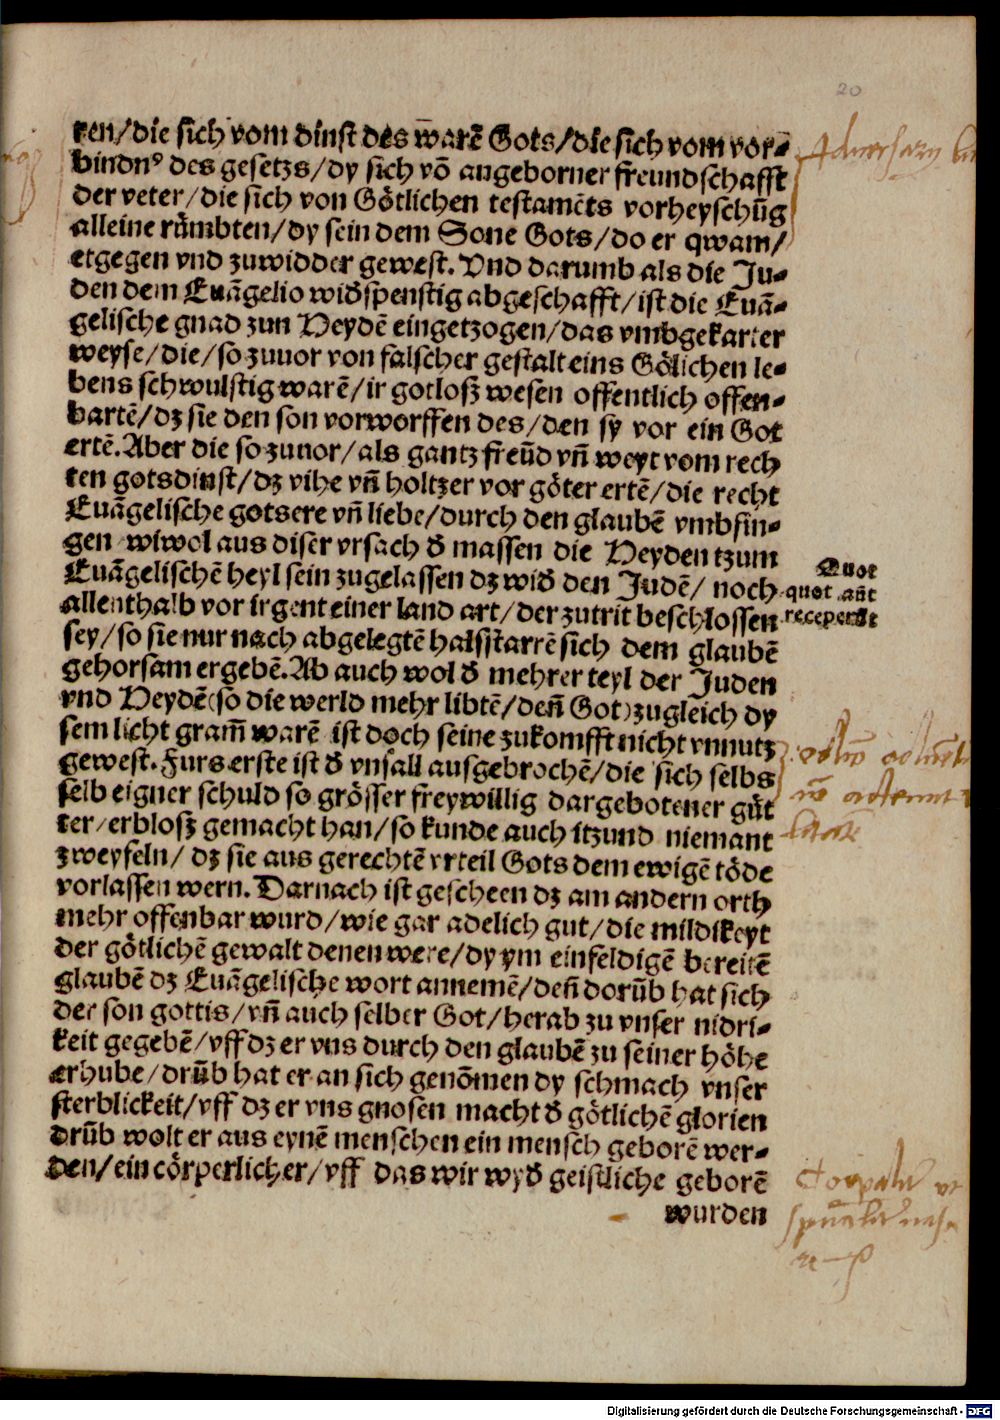 20
ken/die sich vom dinst des warē Gots/die sich vom vor-
bindnꝰ des gesetzs/dy sich vō angeborner freundschafft
der veter/die sich von Götlichen testamēts vorheyschūg
alleine rümbten/dy sein dem Sone Gots/do er qwam/
etgegen vnd zuwidder gewest. Vnd darumb als die Ju-
den dem Euāgelio widspenstig abgeschafft/ist die Euā-
gelische gnad zun Heydē eingetzogen/das vmbgekarter
weyse/die/so zuuor von falscher gestalt eins Gölichen le-
bens schwulstig warē/ir gotloß wesen offentlich offen-
bartē/dz sie den son vorworffen des/den sy vor ein Got
ertē. Aber die so zuuor/als gantz freūd vñ weyt vom rech
ten gotsdinst/dz vihe vñ holtzer vor göter ertē/die recht
Euāgelische gotsere vñ liebe/durch den glaubē vmbfin-
gen wiwol aus diser vrsach đ massen die Heyden tzum
Euāgelischē heyl sein zugelassen dz wiđ den Judē/ noch
allenthalb vor irgent einer land art/der zutrit beschlossen
sey/so sie nur nach abgelegtē halsstarrē sich dem glaubē
gehorsam ergebē. Ab auch wol đ mehrer teyl der Juden
vnd Heydē(so die werld mehr libtē/deñ Got)zugleich dy
sem licht gram̄ warē ist doch seine zukomfft nicht vnnutz
gewest. Furs erste ist đ vnfall ausgebrochē/die sich selbs
selb eigner schuld so grösser freywillig dargebotener güt
ter/erbloß gemacht han/so kunde auch itzund niemant
zweyfeln/ dz sie aus gerechtē vrteil Gots dem ewigē töde
vorlassen wern. Darnach ist gescheen dz am andern orth
mehr offenbar wurd/wie gar adelich gut/die mildikeyt
der götlichē gewalt denen were/dy ym einfeldigē bereitē
glaubē dz Euāgelische wort annemē/deñ dorūb hat sich
der son gottis/vñ auch selber Got/herab zu vnser nidri-
keit gegebē/vff dz er vns durch den glaubē zu seiner höhe
erhube/drūb hat er an sich genōmen dy schmach vnser
sterblickeit/vff dz er vns gnosen macht đ götlichē glorien
drūb wolt er aus eynē menschen ein mensch geborē wer-
den/ein cörperlicher/vff das wir wyđ geistliche geborē
wurden
Quot
quot aūt
receperūt
Digitalisierung gefördert durch die Deutsche Forschungsgemeinschaft - DFG